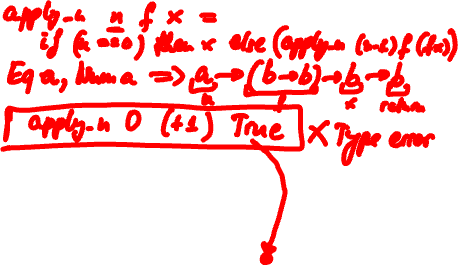 apply_n n f x =
if (n == 0) then x else (apply_n (n-1) f (f x))
Eq a, Num a => a -> (b -> b) -> b -> b
n f x return
apply_n 0 (+1) True X Type error